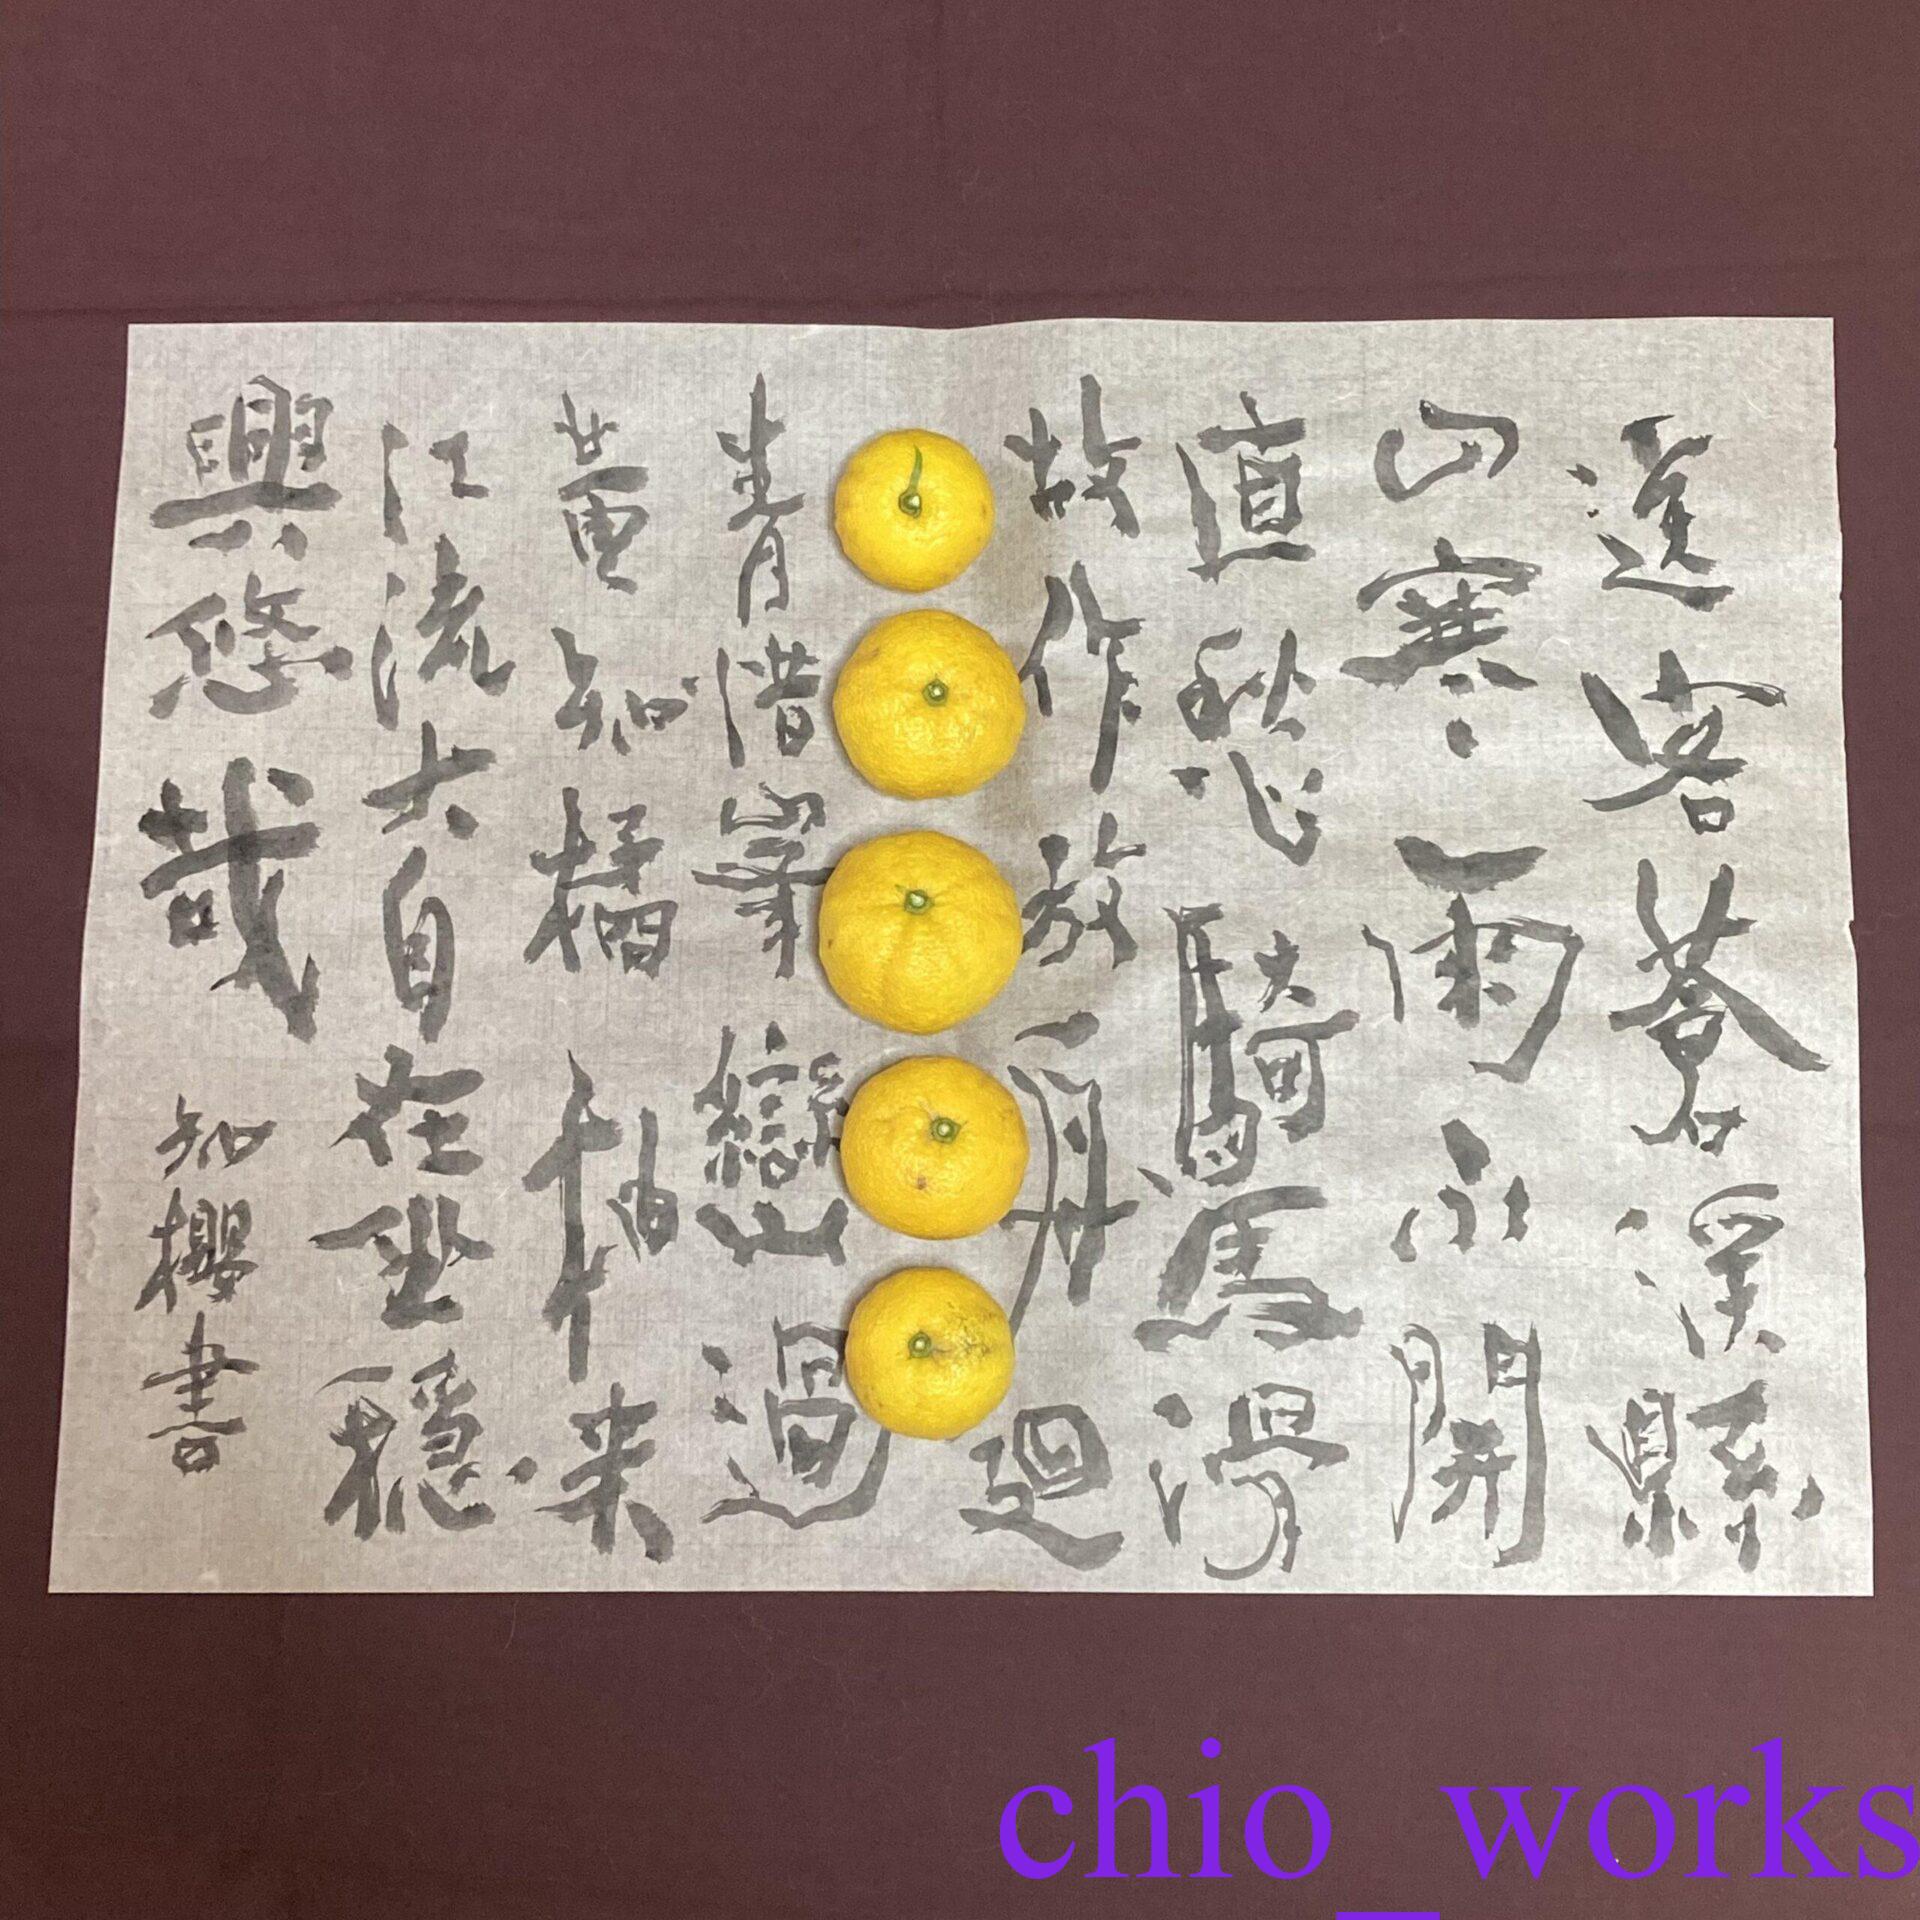 送客蒼溪縣
山寒雨不開
直愁騎馬滑
故作放舟廻
青惜峯巒過
黄知橘柚来
江流大自在
坐穩
興悠哉
知櫻書
chio_works